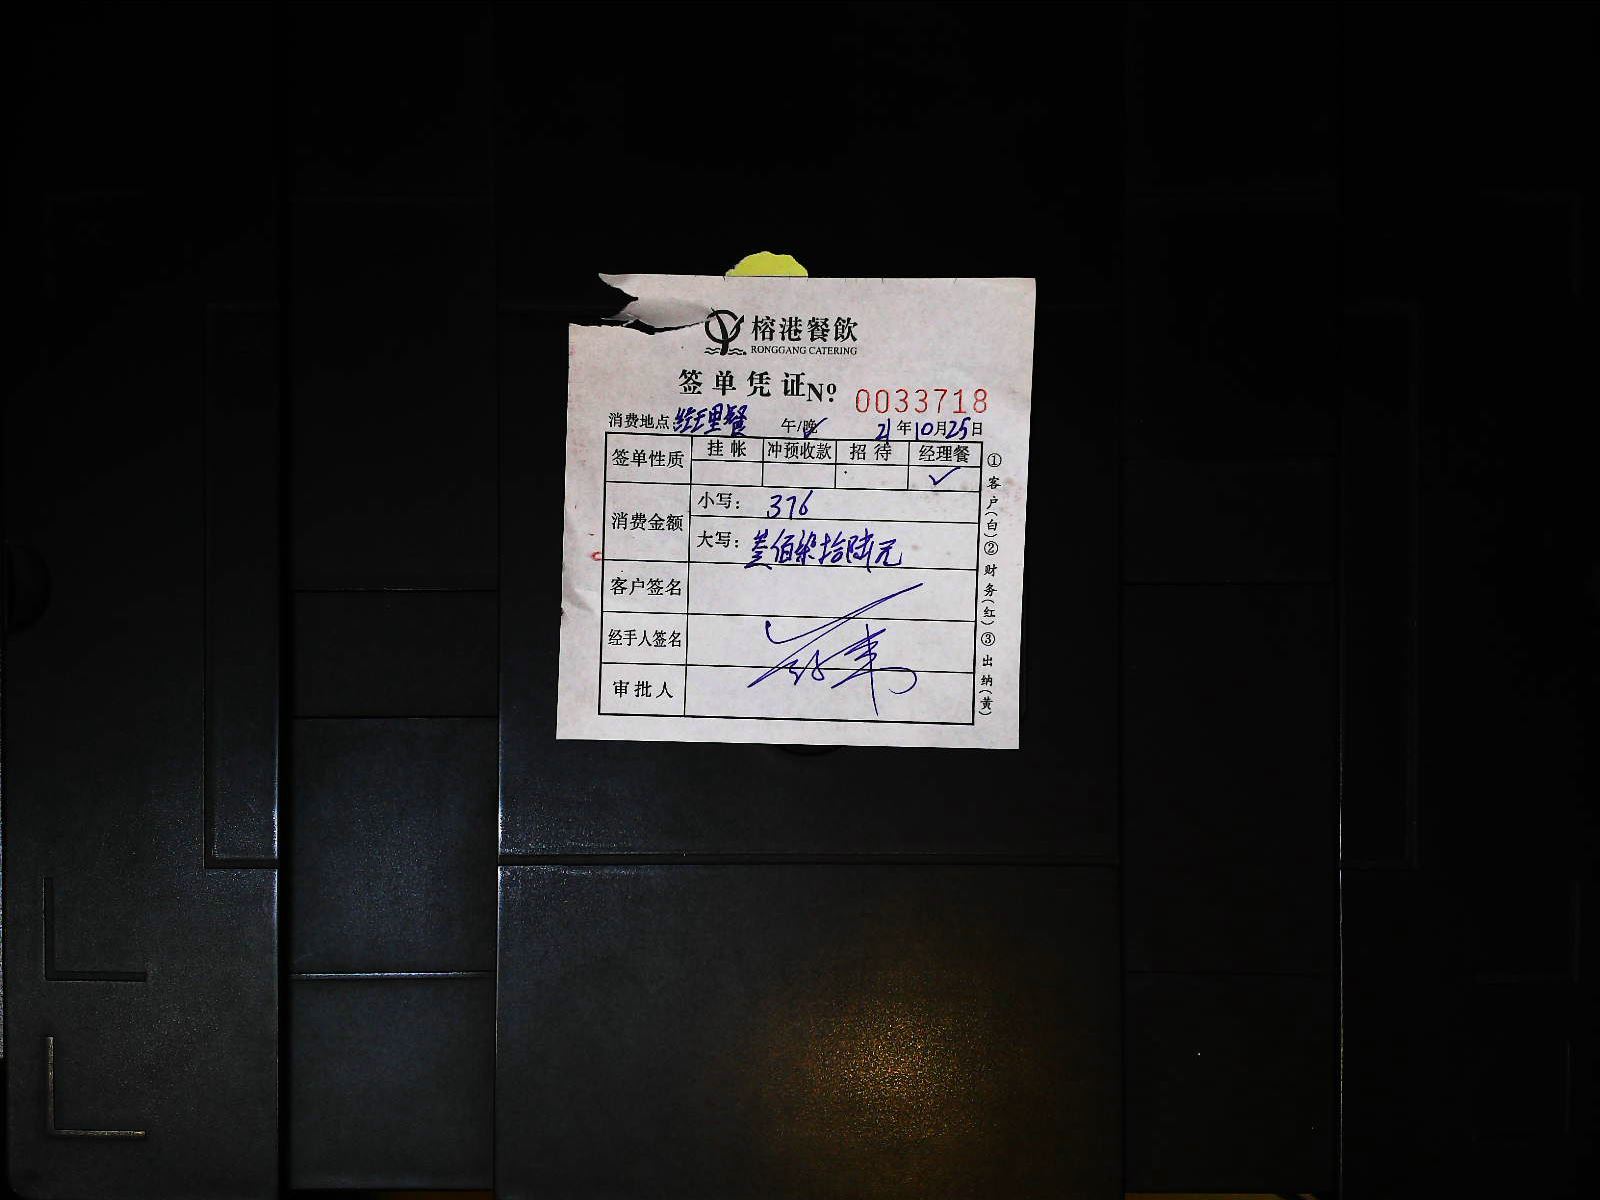 榕港餐飲
RONGGANG CATERING
签单凭证 № 0033718
消费地点: 经理餐 午/晚✓ 21年10月25日
签单性质 挂帐 冲预收款 招待 经理餐
✓
消费金额 小写: 376
大写: 叁佰柒拾陆元
客户签名
经手人签名
审批人
①客户(白)②财务(红)③出纳(黄)